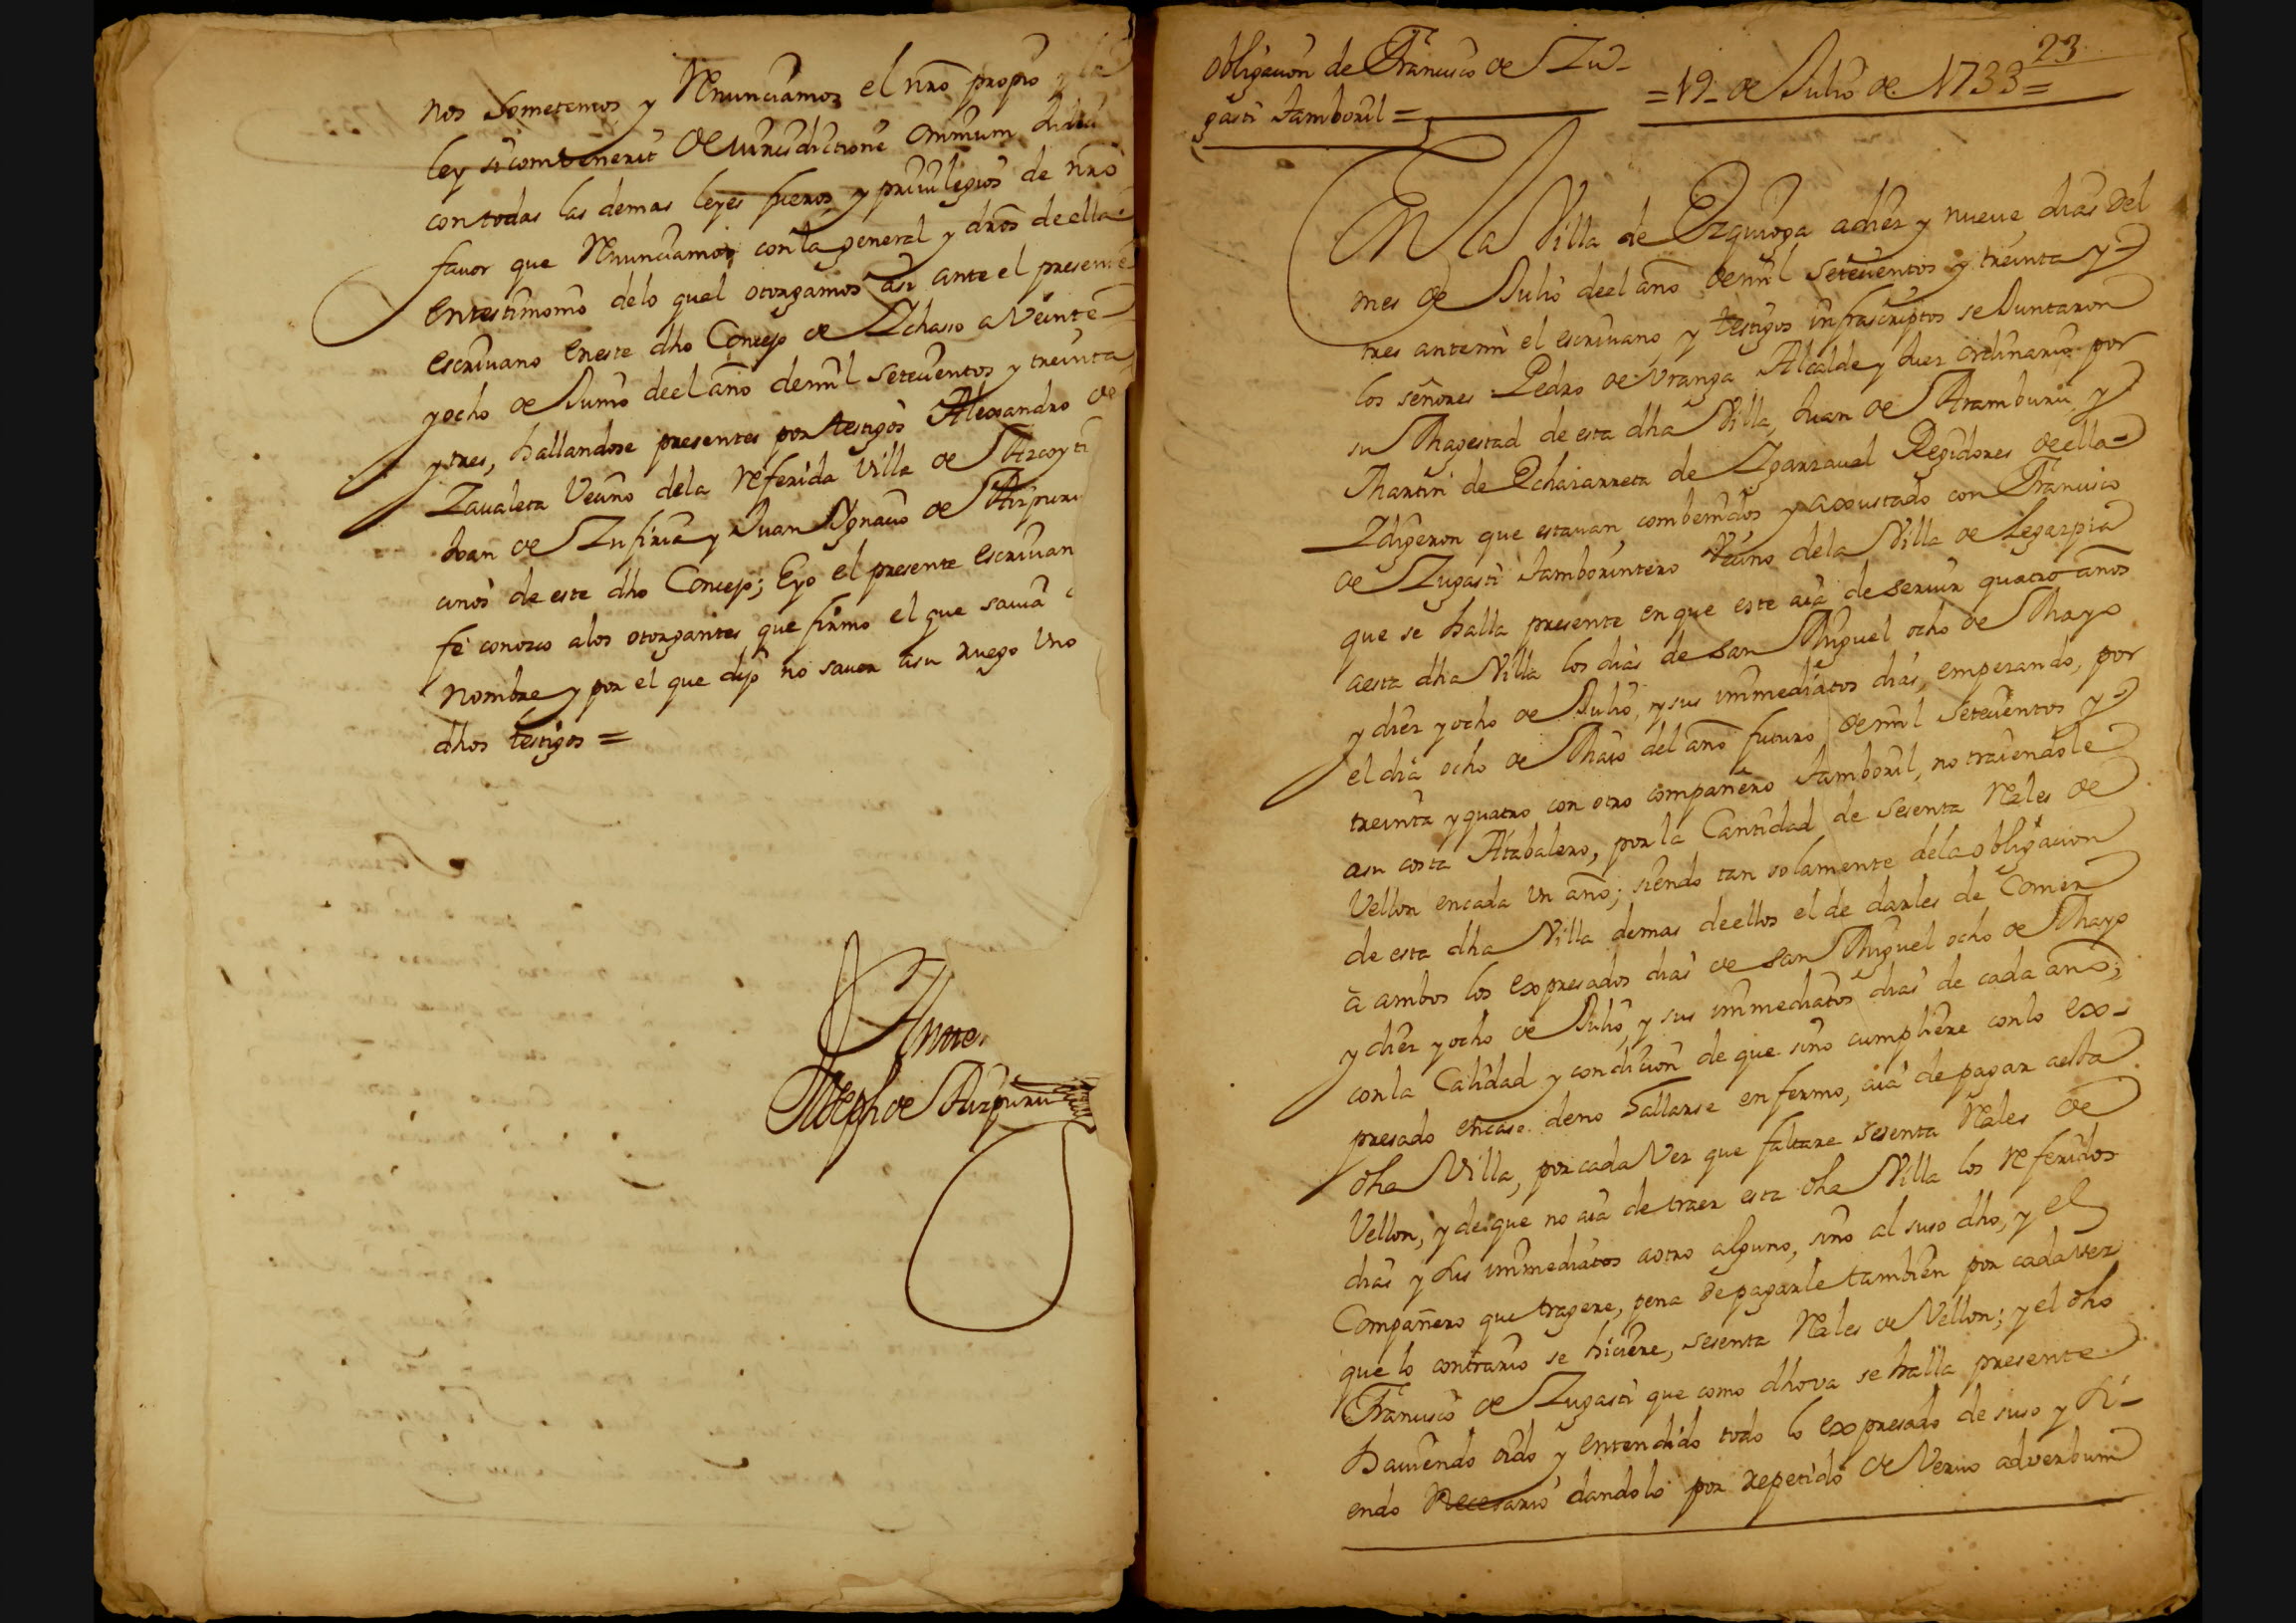 nos sometemos y Renunciamos el nr̃o propio y la
ley si combenerit de iurisdictione omnium
con todas las demas leyes fueros y priuilegios de nr̃o
fauor que Renunciamos con la general y dr̃os de ella
En testimonio delo qual otorgamos asi ante el presente
escriuano En este dho Concejo de Ychaso a Veinte
y ocho de Junio de el año de mil setecientos y treinta
y tres, hallandose presentes por testigos Alexandro de
Zaualeta Vecino dela referida Villa de
Juan de Zufiria y Juan Ygnacio de Aizpuru
cinos de este dho Concejo; E yo el presente escriuan
fe conozco alos otorgantes que firmo el que sauia
nombre y por el que dijo no sauer a su ruego Vno
dhos testigos =
Ante
Joseph de Aizpuru
23
obligacion de Franco. de Zu-
gasti tamboril =
= 19 - de Julio de 1733 =
En la Villa de Ezquioga a diez y nueue dias del
mes de Julio de el año de mil setecientos y treinta y
tres antemi el escriuano y testigos infrascriptos se Juntaron
los señores Pedro de Vranga Alcalde y Juez ordinario por
su Magestad de esta dha Villa, Juan de Aramburu, y
Martin de Echaiarreta de Ygarzaual Regidores de ella
Y digeron que estauan combenidos y axustado con Francisco
de Zugasti tamborintero Vecino dela Villa de Legazpia
que se halla presente en que este aia de seruir quatro años
aesta dha Villa los dias de san Miguel ocho de Mayo
y diez y ocho de Julio, y sus immediatos dias, empezando, por
el dia ocho de Maio del año futuro de mil setecientos y
treinta y quatro con otro compañero tamboril, no traiendole
asu costa Atabalero, por la Cantidad de sesenta Rales de
Vellon encada un año; siendo tan solamente dela obligacion
de esta dha Villa demas deellos el de darles de Comer
à ambos los expresados dias de san Miguel ocho de Mayo
y diez y ocho de Julio, y sus immediatos dias de cada año;
con la Calidad y condicion de que sino cumpliere conlo ex-
presado encaso deno hallarse enfermo, aia de pagar aesta
dha Villa, por cada Vez que faltare sesenta Rales de
Vellon, y deque no aia de traer esta dha Villa los referidos
dias y sus immediatos aotro alguno, sino al suso dho, y el
Compañero que tragere, pena de pagarle tambien por cada vez
que lo contrario se hiciere, sesenta Rales de Vellon; y el dho
Francisco de Zugasti que como dho va se halla presente
hauiendo oido y entendido todo lo expresado de suso y si-
endo Necesario dandolo por repetido de Veruo adverbum